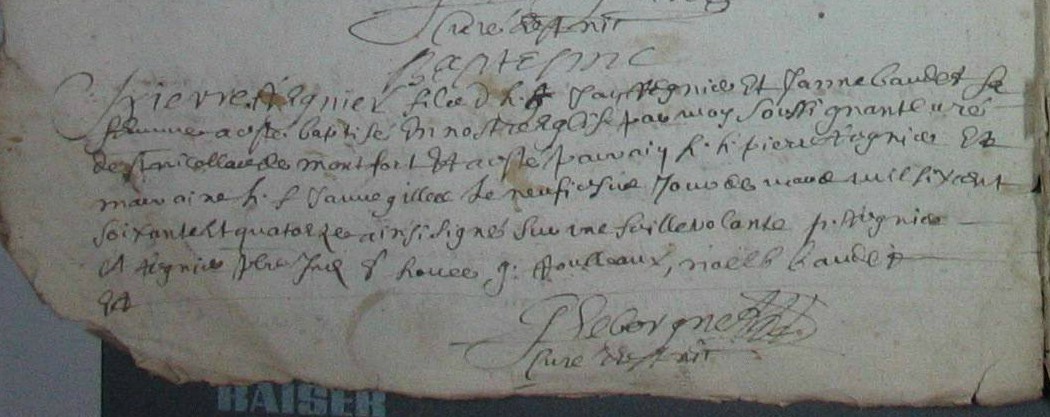 Curé de St nic
Baptesme
Pierre Régnier fils d h. h. Jan Régnier Et Janne baudet sa
femme a esté baptisé En nostre Eglise par moy Soussignant curé
de St nicollas de montfort Et a esté parrain h. h. pierre Régnier Et
marraine h. f. Janne gillet le neufiesme Jour de mars mil six cent
soixante Et quatorze ainsi signés sur une feille volante p. Régnier
Et Régnier houée g. noels baudet
Et
P Leborgne
Curé de St nic
RAISER